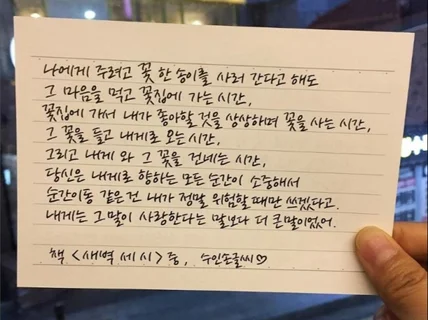 나에게 주려고 꽃 한 송이를 사러 간다고 해도
그 마음을 먹고 꽃집에 가는 시간,
꽃집에 가서 내가 좋아할 것을 상상하며 꽃을 사는 시간,
그 꽃을 들고 내게로 오는 시간,
그리고 내게 와 그 꽃을 건네는 시간,
당신은 내게로 향하는 모든 순간이 소중해서
순간이동 같은건 내가 정말 위험할 때만 쓰겠다고.
내게는 그 말이 사랑한다는 말보다 더 큰말이었어.
책 <새벽 세 시> 중, 수인손글씨♡